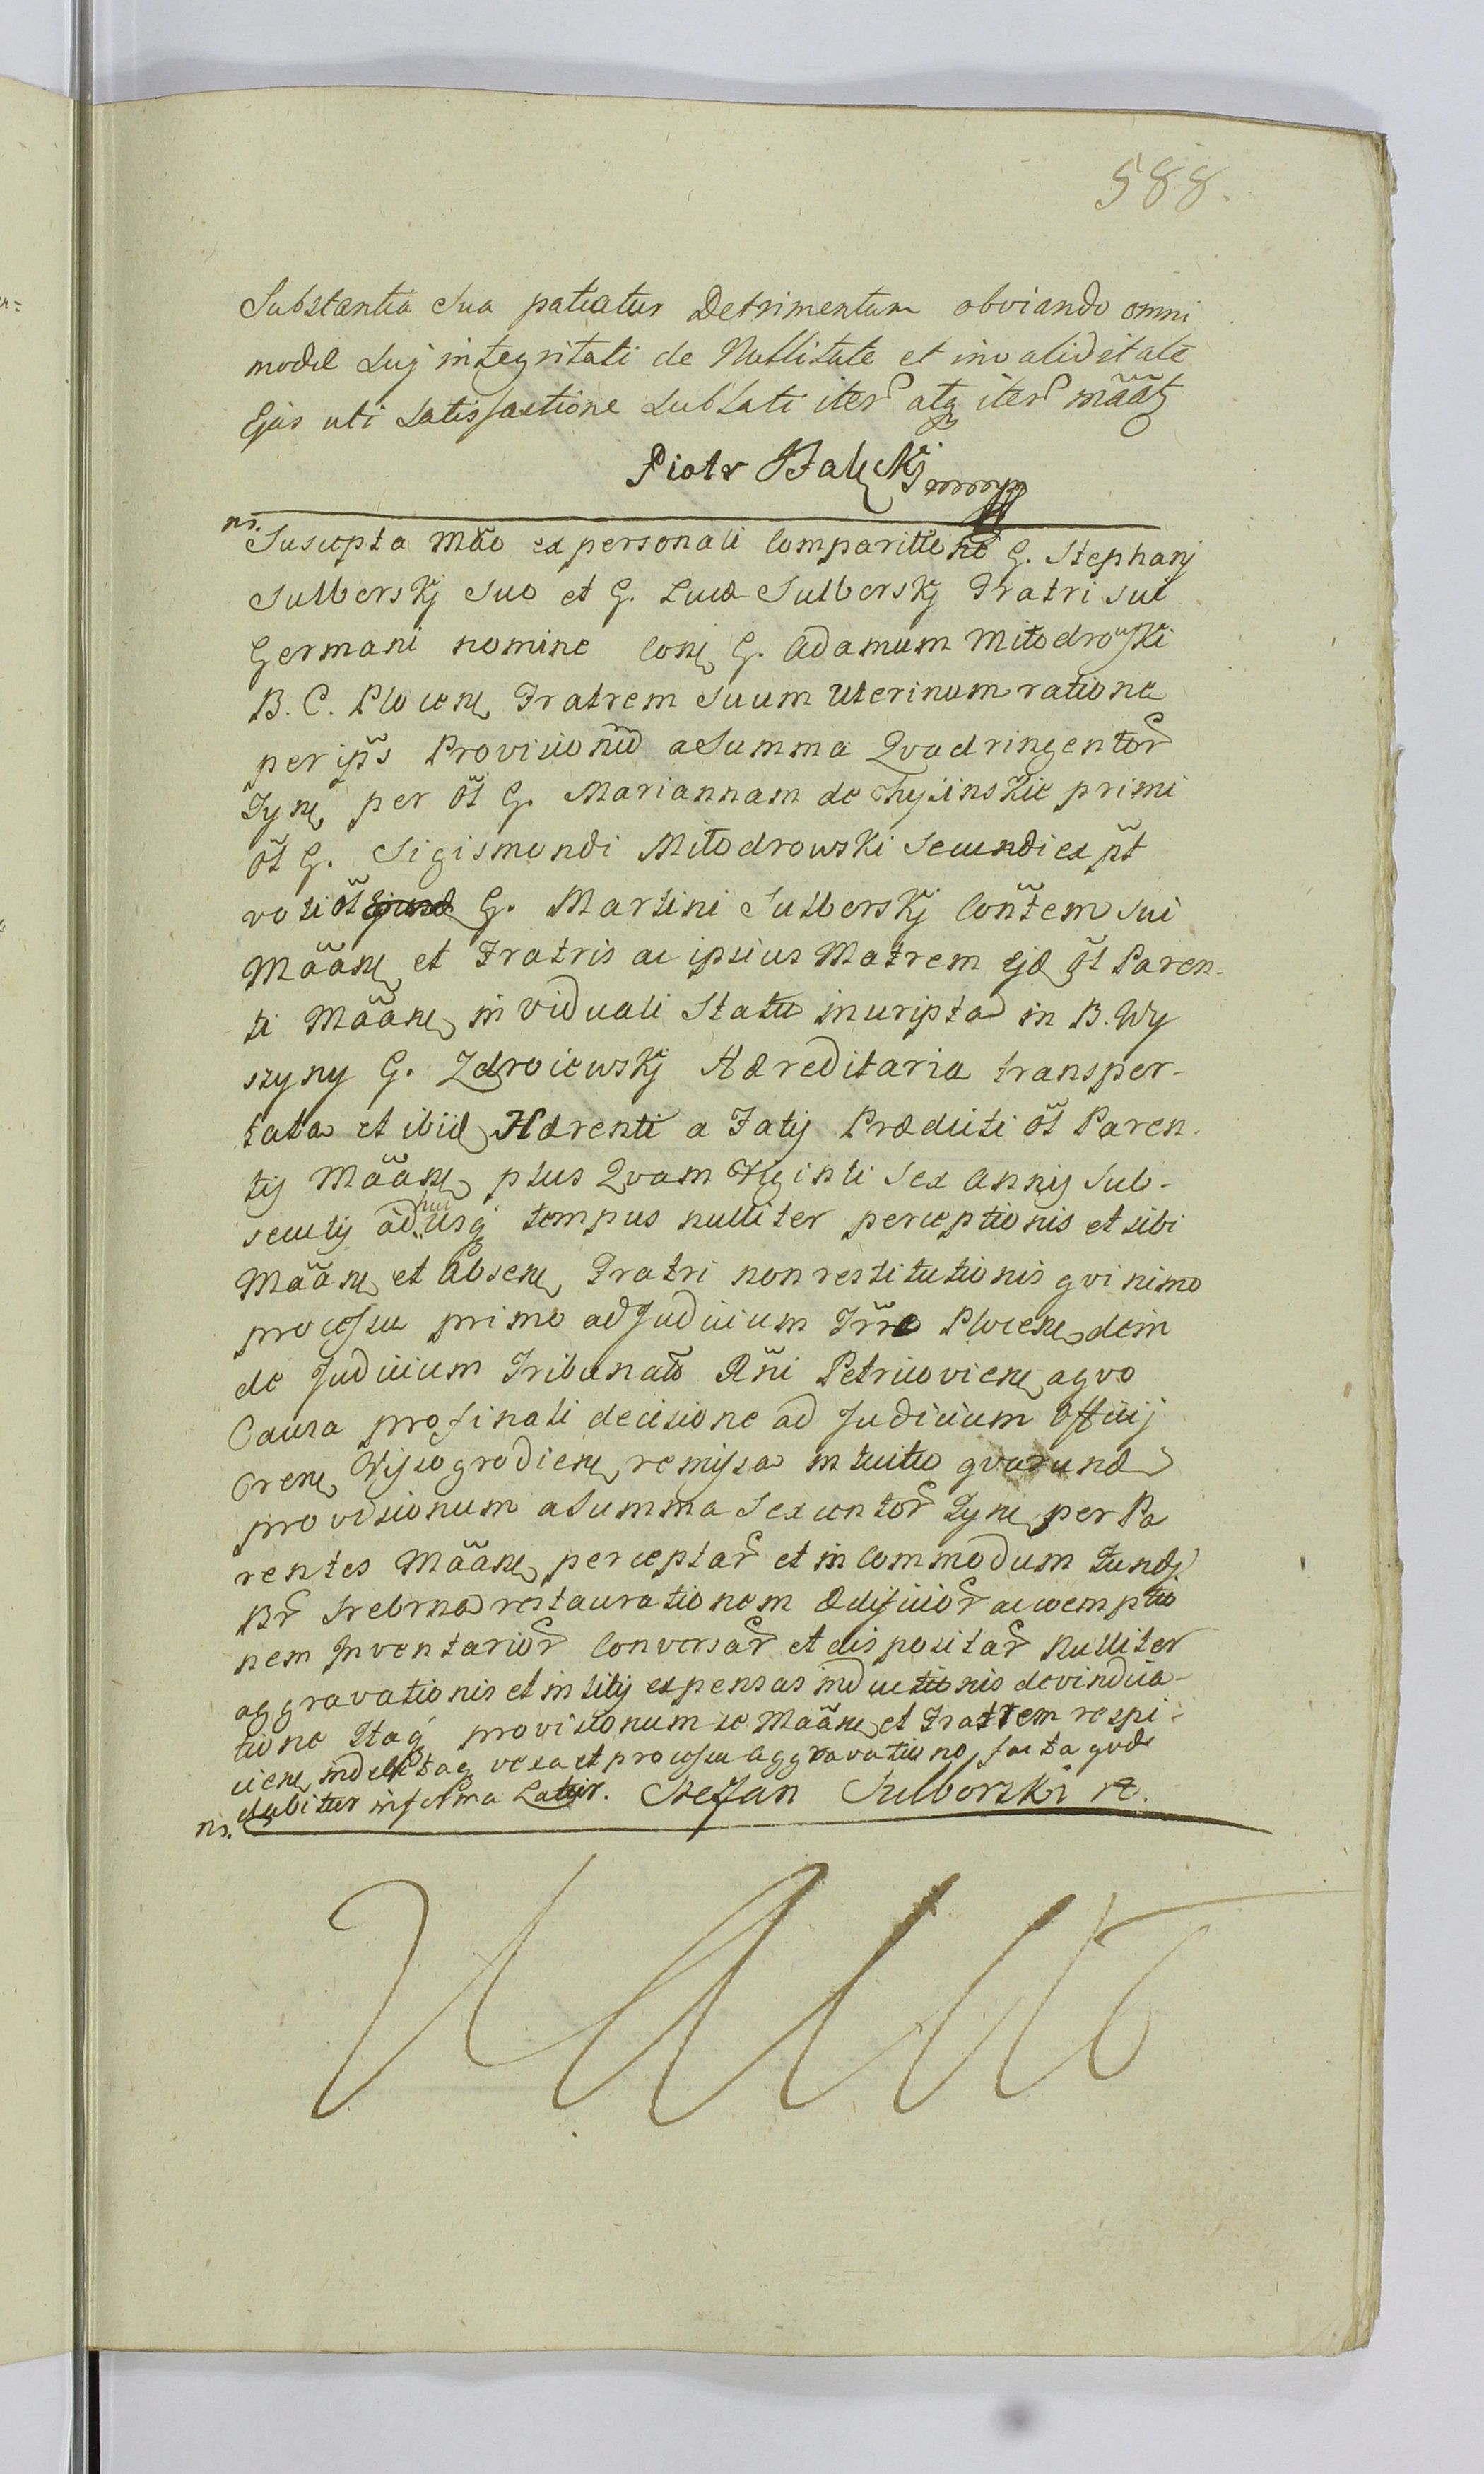 588.
Substantia Sua patiatur Detrimentum obviando omni
mode Suj integritati de Nullitate et invaliditate
Ejus uti Satisfactione Sublati iter atq iter mãat
Piotr
ns.
Suscepta Mão ex personali Comparitione G. Stephanj
Sulberskj Suo et G. Lucæ Sulberskj Fratri sui
Germani nomine Cons G. Adamum Miłodrowski
B. C. Plocens Fratrem Suum Uterinum ratione
per ip̃s Provisionũ a Summa Qvadringentor
Tyns per õt G. Mariannam de primi
õt G. Sigismundi Miłodrowski Secundi ex p̃t
voti õt G. Martini Sulberskj Coñtem sui
Mããns et Fratris ac ipsius Matrem ejd õt Paren-
ti Mããns in Viduali Statu inscripta in B. Wy
szyny G. Zdroiewskj Hæreditaria transper-
tata et ibid Hærenti a Fatij Prædicti õt Paren-
tis Mããns plus Qvam Viginti Sex Annis Sub-
secutij ad huc usq tempus nulliter perceptionis et sibi
Mããns et Absens Fratri non restitutionis qvinimo
processu primo ad Judicium Trr̃e Plocens dein
de Judicium Tribunat Rñi Petricoviens aqvo
Causa pro finali decisione ad Judicium Officij
Crens Wyszogrodiens remissa intuitu qvarund
provisionum a Summa Sexcentor Tyns per Pa
rentes Mããns perceptar et in Commodum Fundj
Br Srebrna restaurationem ædificior ac coemptio
nem Inventarior Conversar et dispositar Nulliter
aggravationis et in litij expensas inductionis devindica-
tione Itaq provisionum se Mããns et Fratrem respi-
ciens indebitaq vexa et processu aggravatione, facta qvd
dabitur in forma Latiir. Stefan Sulborski
ns.